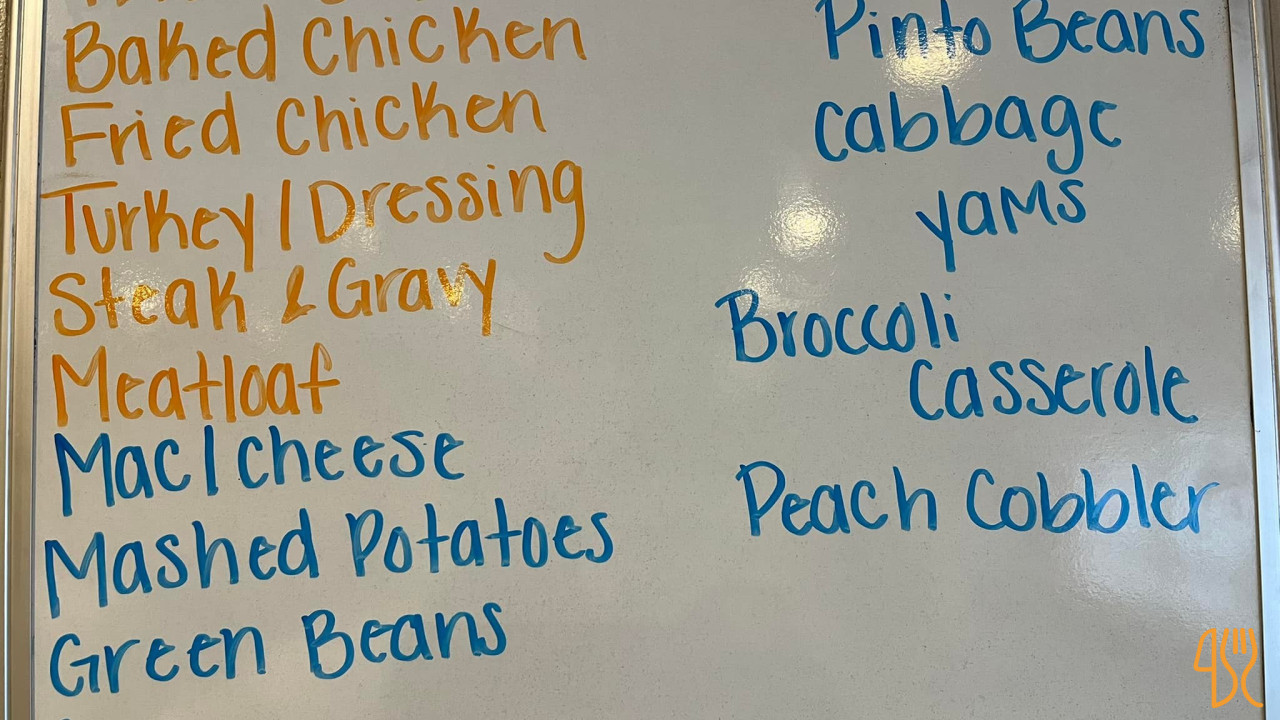 Baked Chicken
Fried Chicken
Turkey / Dressing
Steak & Gravy
Meatloaf
Mac / cheese
Mashed Potatoes
Green Beans
Pinto Beans
Cabbage
yams
Broccoli
Casserole
Peach Cobbler